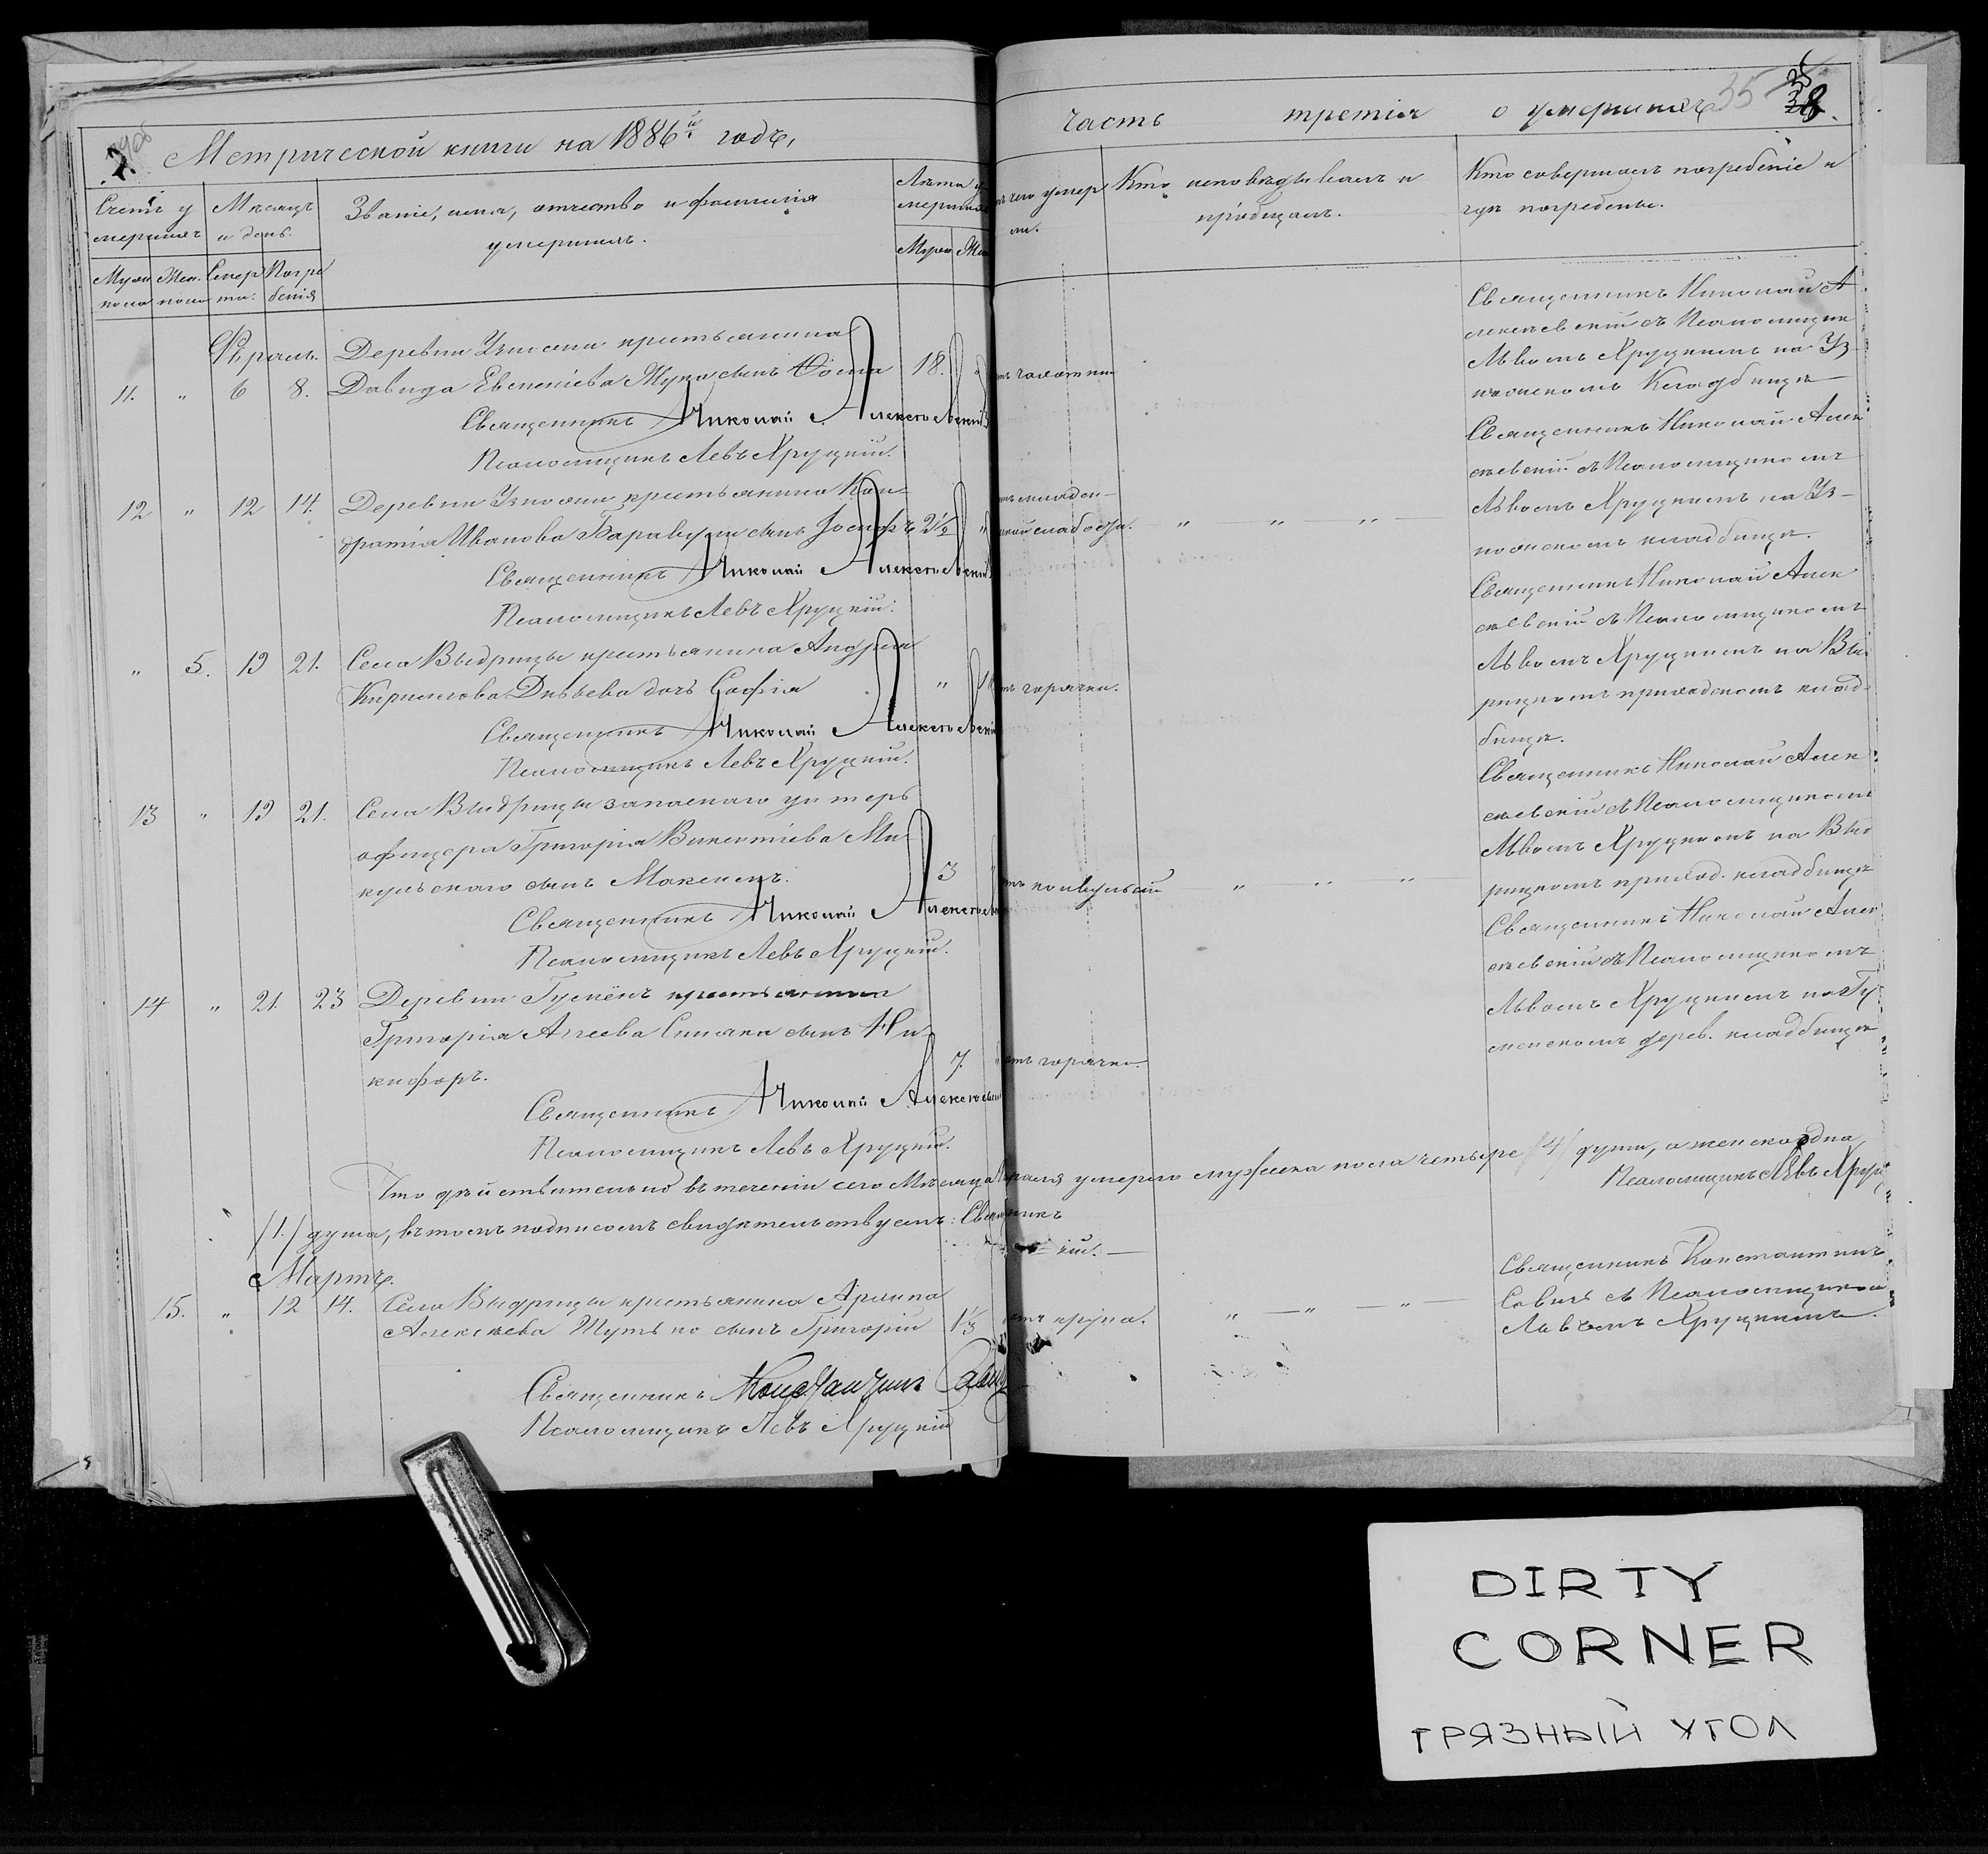 Метрической книги на 1886й годъ,
часть третія о умершихъ 35
Счетъ умершихъ
Мѣсяцъ и день.
Званіе, имя, отчество и фамилія умершихъ.
Лѣта умершаго
Отъ чего умерли.
Кто исповѣдывалъ и пріобщалъ.
Кто совершалъ погребеніе и гдѣ погребены.
Муж. Жен.
Февраль.
11. " 6 8. Деревни Узносны крестьянина
Давида Евсевіева сынъ Ѳома 18. "
Священникъ Николай Алексѣевскій
Псаломщикъ Левъ Хруцкій.
Священникъ Николай А
лексѣевскій съ Псаломщик
Львомъ Хруцкимъ на Уз
кладбищѣ
12 " 12 14. Деревни Узносны крестьянина Кон-
дратія Иванова сынъ Іосифъ 2½ "
слабости. " " "
Священникъ Николай Алексѣевскій
Псаломщикъ Левъ Хруцкій.
Священникъ Николай Алек
сѣевскій съ Псаломщикомъ
Львомъ Хруцкимъ на Уз-
носкомъ кладбищѣ.
" 5. 19 21. Села Выдрицы крестьянина Андрея
Кирилова дочь Софія "
горячки.
Священникъ Николай Алексѣевскій
Псаломщикъ Левъ Хруцкій.
Священникъ Николай Алек
сѣевскій съ Псаломщикомъ
Львомъ Хруцкимъ на Выд
рицкомъ приходскомъ клад-
бищѣ.
13 " 19 21. Села Выдрицы запаснаго унтеръ
офицера Григорія Викентіева Ми-
кульскаго сынъ Максимъ. 3 "
отъ конвульсій " " "
Священникъ Николай Алексѣев
Псаломщикъ Левъ Хруцкій.
Священникъ Николай Алек
сѣевскій съ Псаломщикомъ
Львомъ Хруцкимъ на Выд
рицкомъ приход. кладбищѣ
14 " 21. 23 Деревни Гуменъ крестьянина
Григорія Агеева Симака сынъ Ни-
кифоръ. 7. "
отъ горячки.
Священникъ Николай Алексѣевс
Псаломщикъ Левъ Хруцкій.
Священникъ Николай Алек
сѣевскій съ Псаломщикомъ
Львомъ Хруцкимъ на Гу
менскомъ дерев. кладбищѣ
Что дѣйствительно въ теченіи сего Мѣсяца Февраля умерло мужеска пола четыре /4/ души, а женска одна
/1./ душа, въ томъ подписомъ свидѣтельствуемъ: Священникъ
Псаломщикъ Левъ Хруц
Мартъ.
15. " 12 14. Села Выдрицы крестьянина
Алексѣева Шутько сынъ Григорій 1⅓
отъ крупа. " " "
Священникъ Константинъ Савичъ
Псаломщикъ Левъ Хруцкій
Священникъ Константинъ
Савичъ съ Псаломщикомъ
Львомъ Хруцкимъ.
DIRTY
CORNER
ГРЯЗНЫЙ УГОЛ